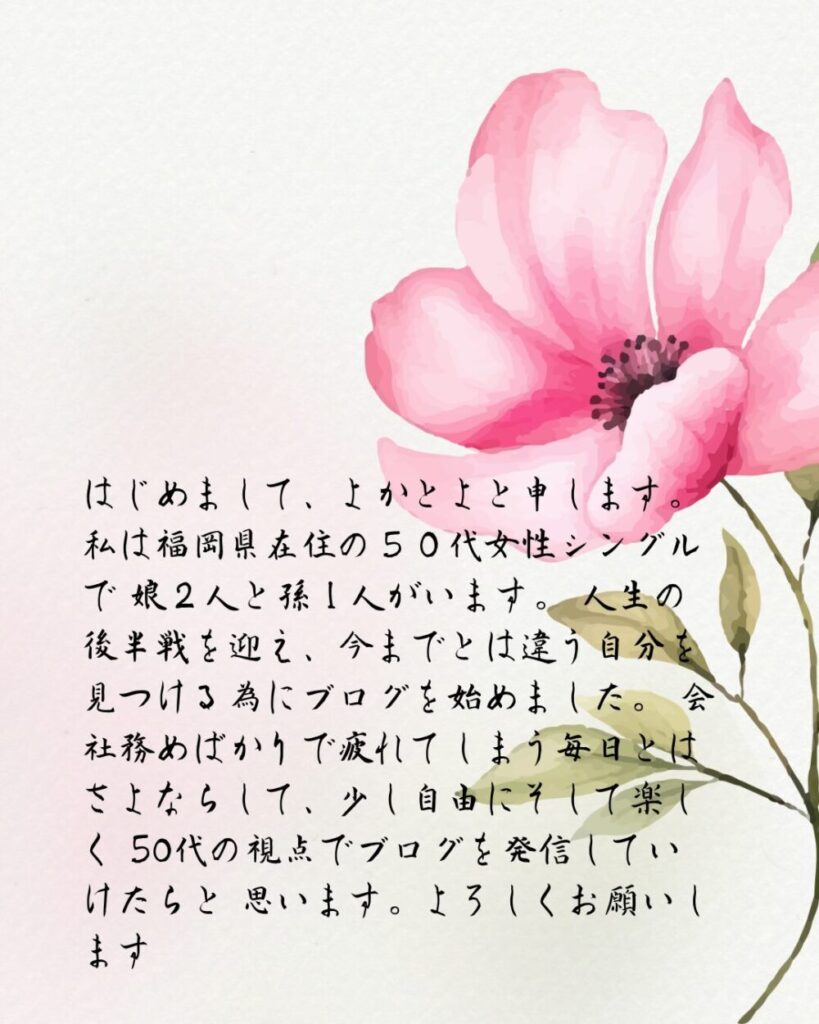 はじめまして、よかとよと申します。
私は福岡県在住の５０代女性シングル
で 娘２人と孫１人がいます。 人生の
後半戦を迎え、今までとは違う自分を
見つける為にブログを始めました。 会
社務めばかりで疲れてしまう毎日とは
さよならして、少し自由にそして楽し
く 50代の視点でブログを発信してい
けたらと 思います。よろしくお願いし
ます